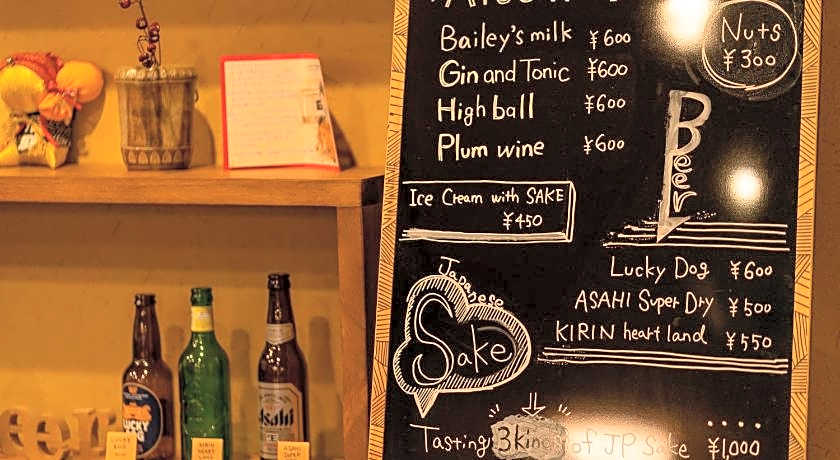 Bailey's milk ¥600
Gin and Tonic ¥600
High ball ¥600
Plum wine ¥600
Nuts
¥300
Ice Cream with SAKE
¥450
Beer
Lucky Dog ¥600
ASAHI Super Dry ¥500
KIRIN heart land ¥550
Japanese
Sake
Tasting 3kind of JP Sake ¥1,000
LUCKY
DOG
Asahi
LUCKY
DOG
KIRIN
HEART
LAND
ASAHI
SUPER